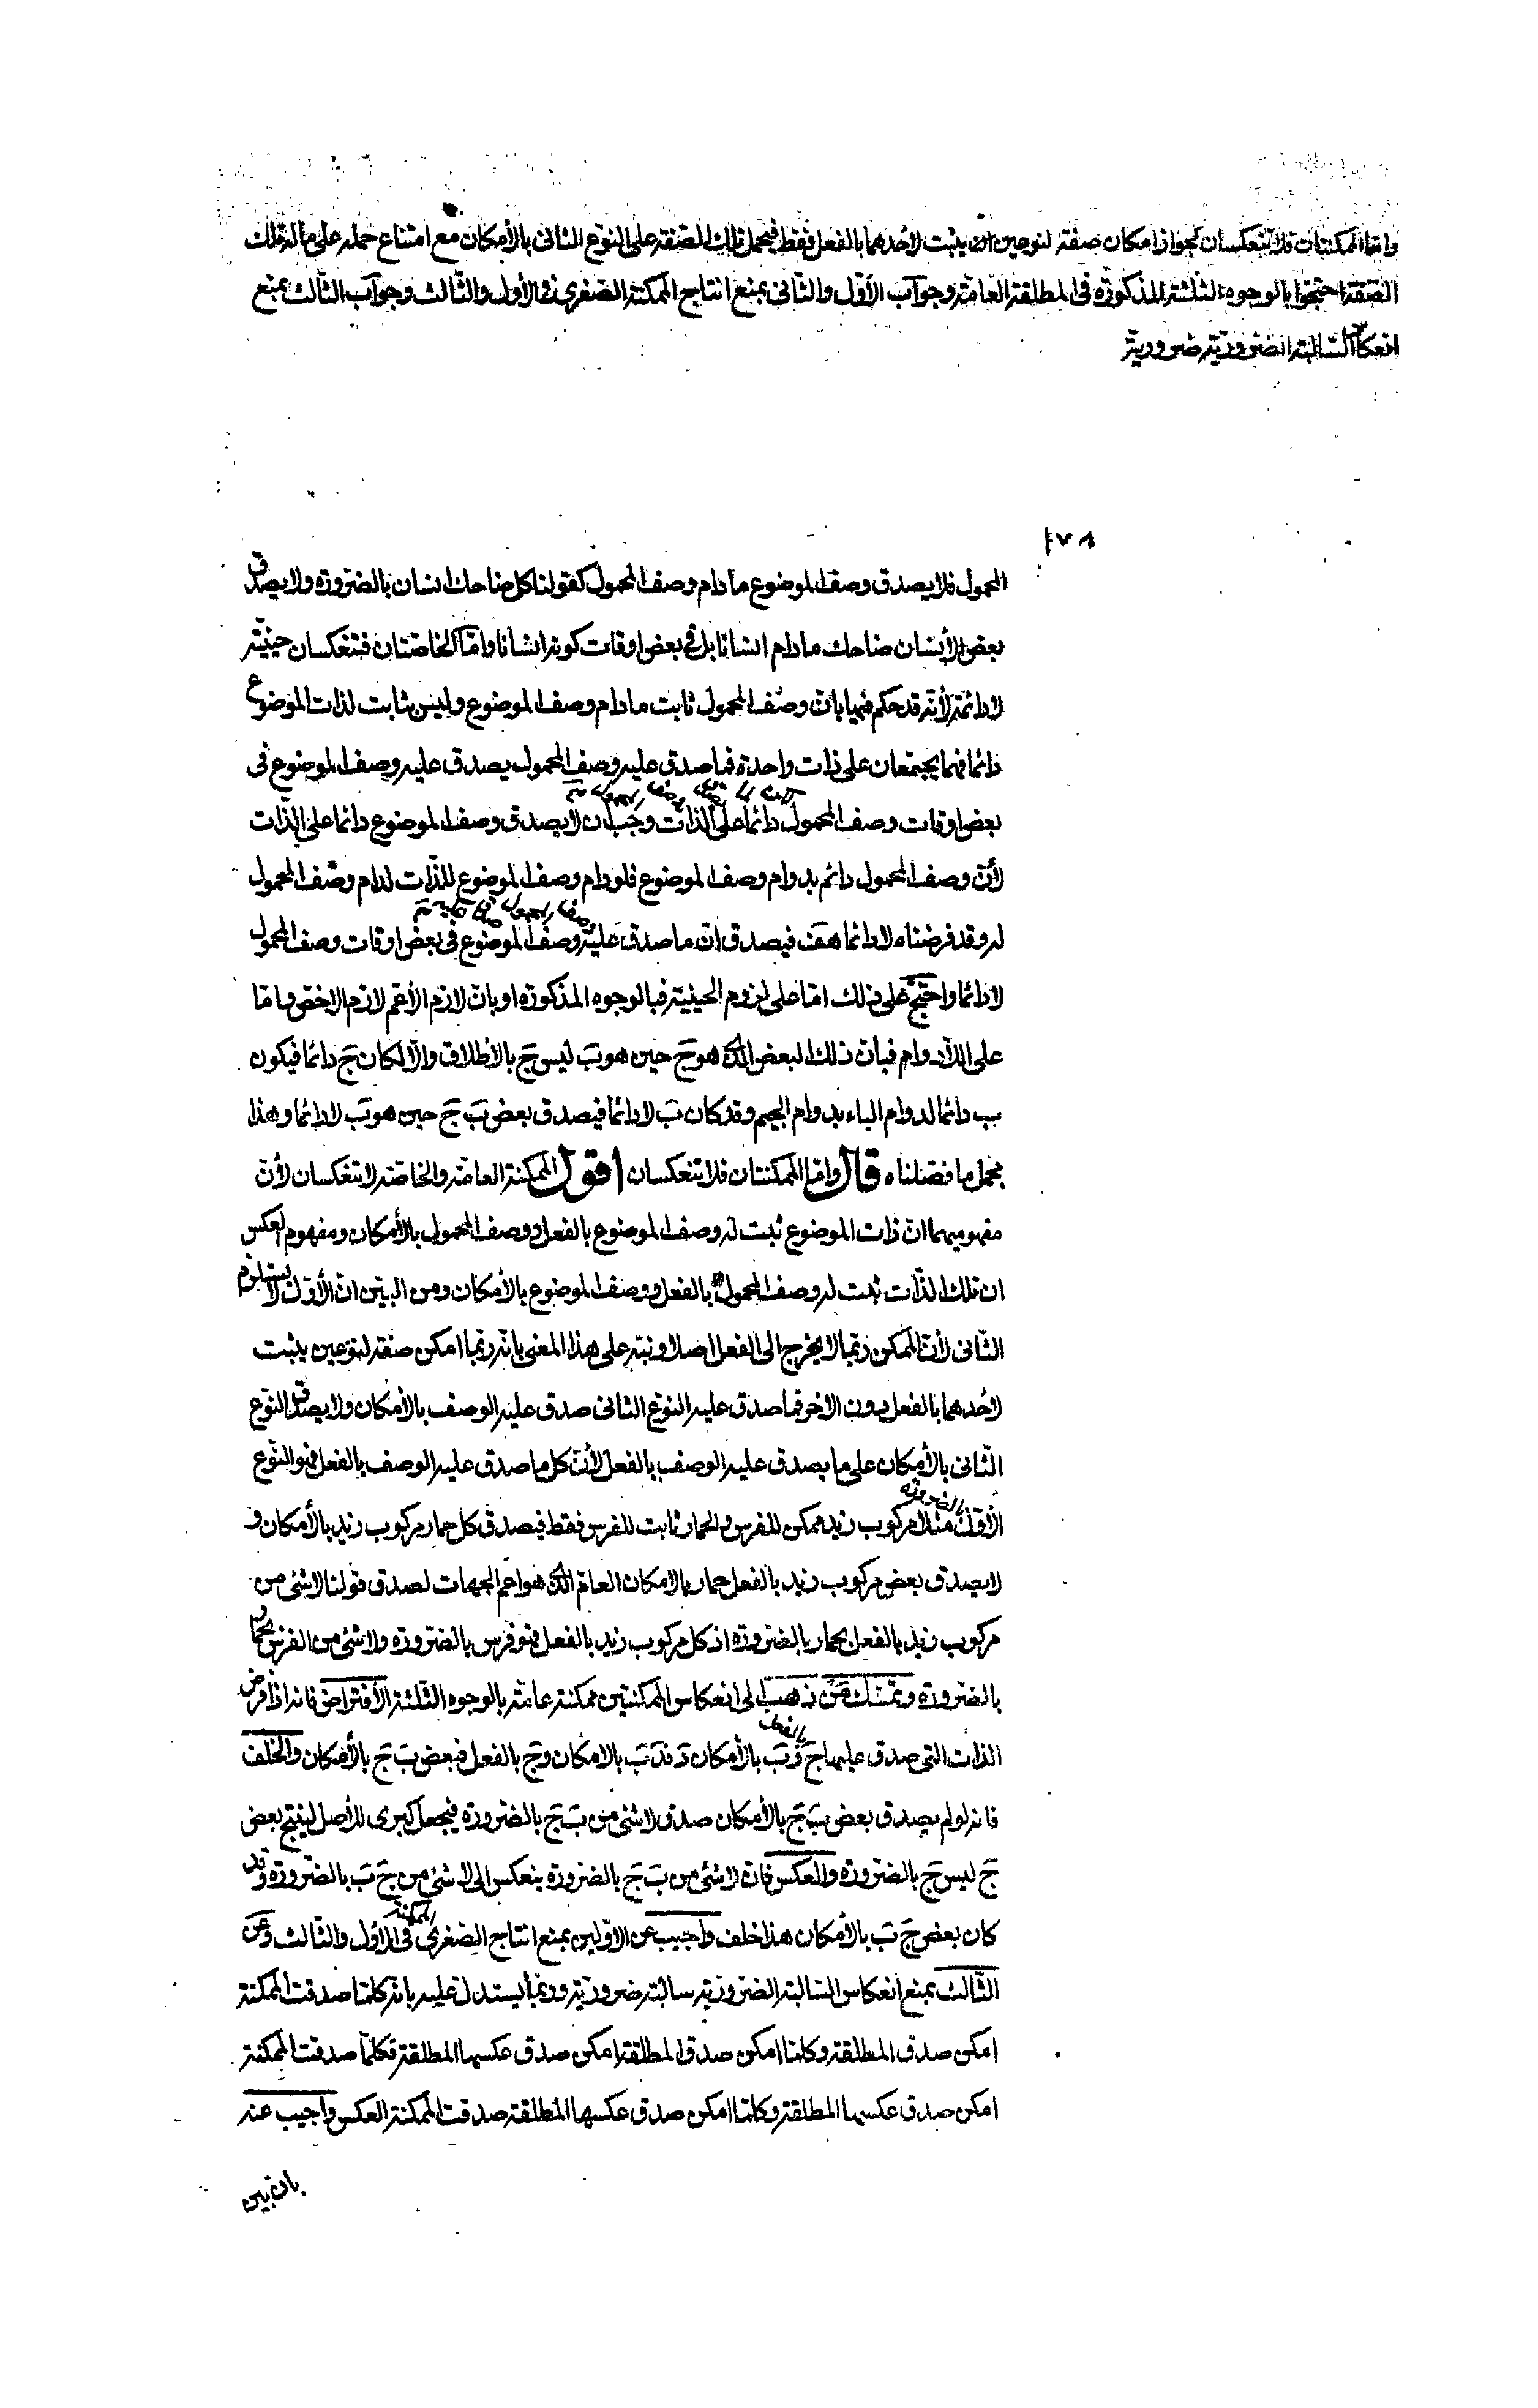 وامّا الممكنتان فلا تنعكسان لجواز امكان صفة لنوعين ان يثبت لأحدهما بالفعل فقط فيحمل تلك الصّفة على النوع الثانى بالأمكان مع امتناع حمله على ماله تلك
الصّفة احتجّوا بالوجوه الثلثة المذكورة فى المطلقة العامّة وجواب الأوّل والثانى بمنع انتاج الممكنة الصّغرى فى الأول والثّالث وجواب الثّالث بمنع
انعكاس السّالبة الضروريّة ضروريّة
المحمول فلا يصدق وصف الموضوع ما دام وصف المحمول كقولنا كل ضاحك انسان بالضّرورة ولا يصدق
بعض الأنسان ضاحك ما دام انسانا بل فى بعض اوقات كونه انسانا وامّا الخاصّتان فتنعكسان حينيّة
لا دائمة لأنّه قد حكم فيها بانّ وصف المحمول ثابت ما دام وصف الموضوع وليس ثابت لذات الموضوع
دائما فهما يجتمعان على ذات واحدة فما صدق عليه وصف المحمول يصدق عليه وصف الموضوع فى
بعض اوقات وصف المحمول دائما على الذات وجب ان لا يصدق وصف الموضوع دائما على الذّات
لأنّ وصف المحمول دائم بدوام وصف الموضوع فلو دام وصف الموضوع للذّات لدام وصف المحمول
له وقد فرضناه لا دائما هف فيصدق انّ ما صدق عليه وصف الموضوع فى بعض اوقات وصف المحمول
وصف المحمول صدق عليه
لا دائما واحتجّ على ذلك امّا على لزوم الحينيّة فبالوجوه المذكورة او بانّ لازم الأعمّ لازم الاخصّ وامّا
على اللّادوام فبانّ ذلك البعض الذى هو ج حين هو ب ليس ج بالأطلاق والّا لكان ج دائما فيكون
ب دائما لدوام الباء بدوام الجيم وقد كان ب لا دائما فيصدق بعض ب ج حين هو ب لا دائما وهذا
مجمل ما فصّلناه قال وامّا الممكنتان فلا تنعكسان اقول الممكنة العامّة والخاصّة لا تنعكسان لأنّ
مفهوميهما انّ ذات الموضوع ثبت له وصف الموضوع بالفعل ووصف المحمول بالأمكان ومفهوم العكس
ان تلك الذّات ثبت له وصف المحمول بالفعل ووصف الموضوع بالأمكان ومن البيّن انّ الأوّل لا يستلزم
الثّانى لأنّ الممكن ربّما لا يخرج الى الفعل اصلا ونبّه على هذا المعنى بانّه ربّما امكن صفة لنوعين يثبت
لأحدهما بالفعل دون الآخر فما صدق عليه النوّع الثانى صدق عليه الوصف بالأمكان ولا يصدق النوّع
الثّانى بالأمكان على ما يصدق عليه الوصف بالفعل لأنّ كل ما صدق عليه الوصف بالفعل فهو النوّع
الأوّل بالضرورة مثلا مركوب زيد ممكن للفرس والحمار ثابت للفرس فقط فيصدق كل حمار مركوب زيد بالأمكان و
لا يصدق بعض مركوب زيد بالفعل حمار بالامكان العامّ الذى هو اعمّ الجهات لصدق قولنا لا شئ من
مركوب زيد بالفعل بحمار بالضّرورة اذ كل مركوب زيد بالفعل فهو فرس بالضّرورة ولا شئ من الفرس بحمار
بالضّرورة وتمسّك من ذهب الى انعكاس الممكنتين ممكنة عامّة بالوجوه الثّلثة الأفتراض فانه اذا فرض
الذات التى صدق عليها ج بالفعل وب بالأمكان د فد ب بالامكان وج بالفعل فبعض ب ج بالأمكان والخلف
فانه لو لم يصدق بعض ب ج بالأمكان صدق لا شئ من ب ج بالضّرورة فيجعل كبرى للأصل لينتج بعض
ج ليس ج بالضّرورة والعكس فانّ لا شئ من ب ج بالضّرورة ينعكس الى لا شئ من ج ب بالضّرورة وقد
كان بعض ج ب بالأمكان هذا خلف واجيب عن الاوّلين بمنع انتاج الصّغرى الممكنة فى الأول والثّالث وعن
الثّالث بمنع انعكاس السّالبة الضّروريّة سالبة ضروريّة وربّما يستدلّ عليه بانّه كلّما صدقت الممكنة
امكن صدق المطلقة وكلّما امكن صدق المطلقة امكن صدق عكسها المطلقة فكلّما صدقت الممكنة
امكن صدق عكسها المطلقة وكلّما امكن صدق عكسها المطلقة صدقت الممكنة العكس واجيب عنه
بان بين